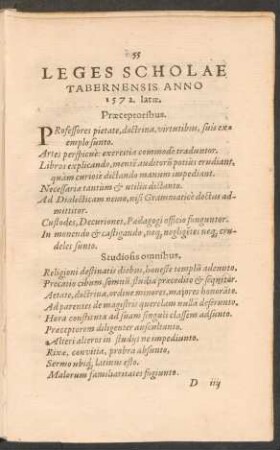 55
LEGES SCHOLAE
TABERNENSIS ANNO
1572. latæ.
Præceptoribus.
PRofessores pietate, doctrina, virtutibus, suis ex-
emplo sunto.
Artes perspicuè: exercitia commodè traduntur.
Libros explicando, mentē auditorũ potiùs erudiant,
quàm curiosè dictando manum impediant.
Necessaria tantùm & utilia dictanto.
Ad Dialecticam nemo, nisi Grammaticè doctus ad-
mittitur.
Custodes, Decuriones, Pædagogi officio funguntur.
In monendo & castigando, neq, negligētes neq, cru-
deles sunto.
Studiosis omnibus.
Religioni destinatis diebus, honestè templũ adeunto.
Precatio cibum, somnũ, studia præcedito & sequitor.
Aetate, doctrina, ordine minores, majores honorāto.
Ad parentes de magistris querelam nulla deferunto.
Hora constituta ad suam singuli classem adsunto.
Præceptorem diligenter auscultanto.
Alteri alteros in studijs ne impediunto.
Rixæ, convitia, probra absunto,
Sermo ubiq, latinus esto.
Malorum familiaritates fugiunto.
D iiij